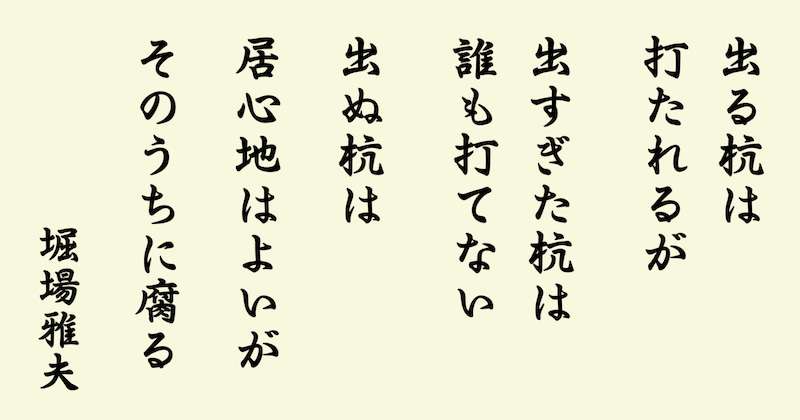 出る杭は
打たれるが
出すぎた杭は
誰も打てない
出ぬ杭は
居心地はよいが
そのうちに腐る
堀場雅夫